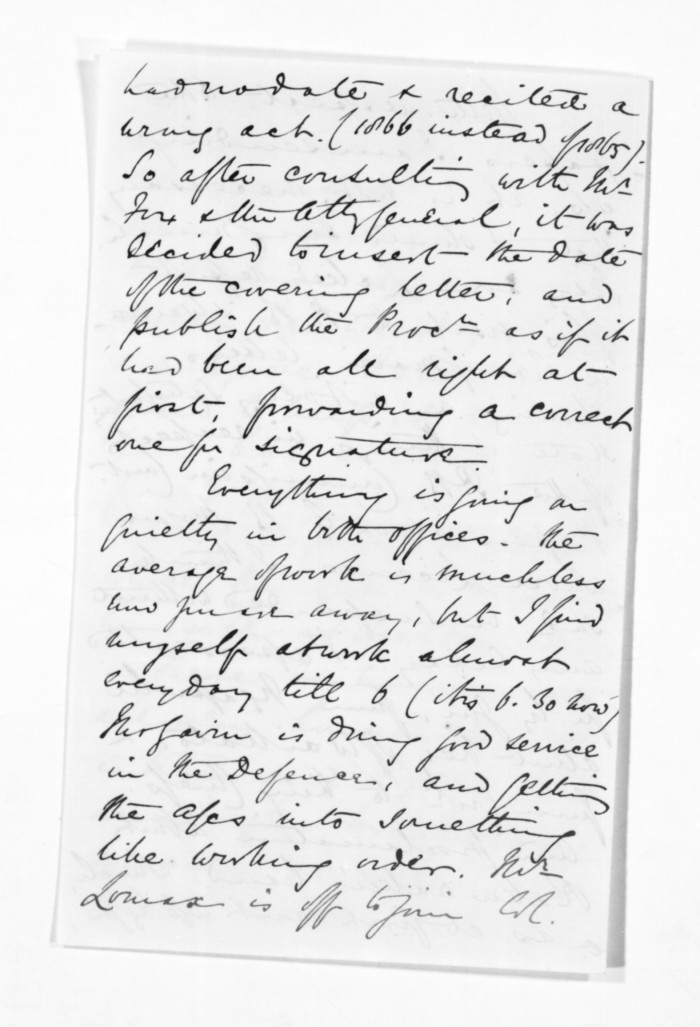 had no date & recited a
wrong act. (1866 instead of 1865).
So after consulting with Mr
Fox & the Atty General, it was
decided to insert the date
of the covering letter, and
publish the Procn as if it
had been all right at
first, forwarding a correct
one for signature.
Everything is going on
quietly in both offices. The
average of work is much less
now you are away, but I find
myself at work almost
everyday till 6 (it is 6.30 now)
McGavin is doing good service
in the Defence, and getting
the a/cs into something
like working order. Mr
Lomax is off to join Col.